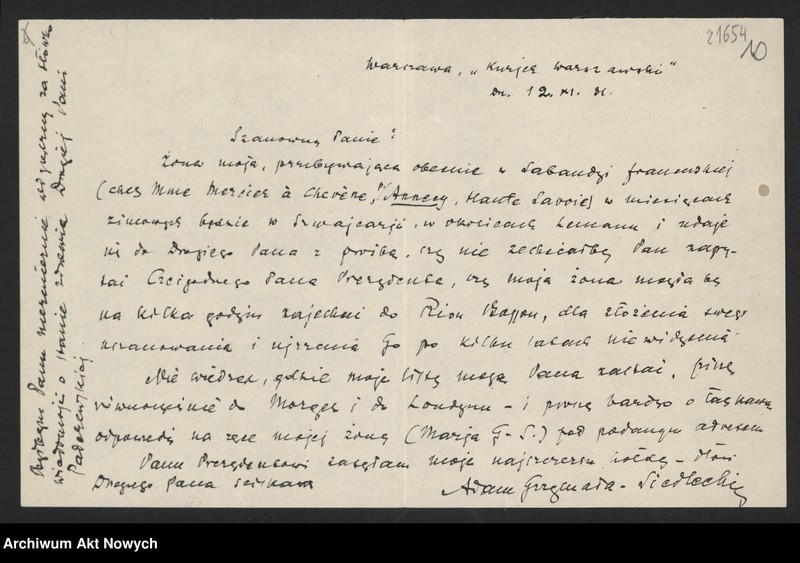 21654
10
Warszawa, „Kurjer Warszawski"
Dn. 12. XI. 31.
Szanowny Panie!
Żona moja, przebywająca obecnie w Sabaudji francuskiej
(chez Mme Mercier à Chevène, p/Annecy, Haute Savoie) w miesiącach
zimowych będzie w Szwajcarji, w okolicach Lemanu i udaję
się do Drogiego Pana z prośbą, czy nie zechciałby Pan zapy-
tać Czcigodnego Pana Prezydenta, czy moja żona mogła by
na kilka godzin zajechać do Rion Bosson, dla złożenia swego
uszanowania i ujrzenia Go po kilku latach niewidzenia.
Nie wiedząc, gdzie moje listy mogą Pana zastać, piszę
równocześnie do Morges i do Londynu – i proszę bardzo o łaskawą
odpowiedź na ręce mojej żony (Marja G.-S.) pod podanym adresem
Panu Prezydentowi zasyłam moje najszczersze hołdy – dłoń
Drogiego Pana ściskam
Adam Grzymała-Siedlecki
Byłbym Panu niezmiernie wdzięczny za słówko
wiadomości o stanie zdrowia Drogiej Pani
Paderewskiej.
Archiwum Akt Nowych